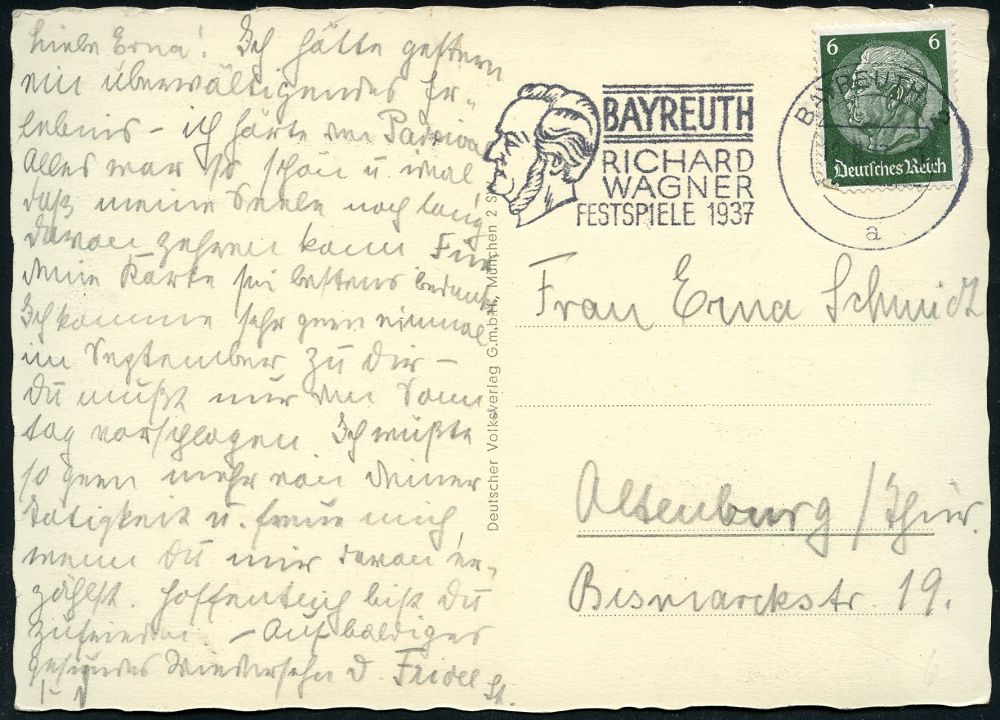 Liebe Erna! Ich hatte gestern
ein überwältigendes Er-
lebnis – ich hörte den Parsival
Alles war so schön u. ideal
daß meine Seele noch lang
davon zehren kann Für
deine Karte sei bestens bedankt
Ich komme sehr gern einmal
im September zu Dir –
du mußt nur den Sonn
tag vorschlagen Ich wüßte
so gern mehr von deiner
Tätigkeit u. freue mich
wenn du mir davon er-
zählst. Hoffentlich bist du
zufrieden – Auf baldiges
gesundes Wiedersehn d. Fridel
Deutscher Volksverlag G.m.b.H., München 2 S
BAYREUTH
RICHARD
WAGNER
FESTSPIELE 1937
6 6
Deutsches Reich
BAYREUTH
a
Frau Erna Schmidt
Altenburg / Thür.
Bismarckstr. 19.